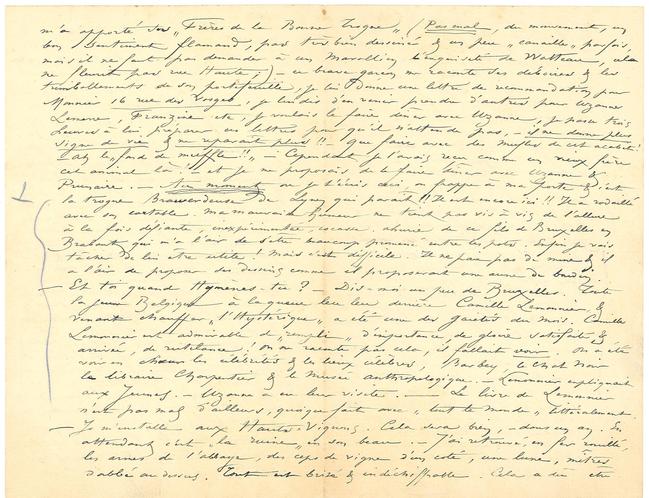 m'a apporté ses „Frères de la Bonne Trogne" (Pas mal, du mouvement, un
bon sentiment flamand, pas très bien dessiné & un peu „canaille" parfois,
mais il ne faut pas demander à un Marollien l'exquisité de Watteau, cela
ne fleurit pas rue Haute,) – ce brave garçon me raconte ses déboires & les
de son portefeuille, je lui donne une lettre de recommandation pour
Monnier 16 rue des Vosges, je lui dis d'en venir prendre d'autres pour Uzanne
Lemerre, etc, je voulais le faire dîner avec Uzanne, je passe trois
heures à lui préparer ces lettres pour qu'il n'attende pas, – il ne donne plus
signe de vie & ne reparait plus!! Que faire avec des mufles de cet acabit!
„ah le fond de muffle!!" – Cependant je l'avais reçu comme un vieux frère
cet animal là! et je me proposais de le faire dîner avec Uzanne &
– Au moment où je t'écris ceci, on frappe à ma porte & c'est
la trogne de Lynen qui parait!! Il est encore ici!! Il a
avec son cartable. Ma mauvaise humeur ne tient pas vis à vis de l'allure
à la fois défiante, inexpérimentée, & ahurie de ce fils de Bruxelles en
Brabant qui m'a l'air de s'être beaucoup promené entre les pots. Enfin je vais
tâcher de lui être utile! Mais c'est difficile. Il ne paie pas de mine & il
a l'air de proposer des dessins comme il proposerait une aune de boudin.
– Et toi quand Hymenes-tu? – Dis-moi un peu de Bruxelles. Toute
la Jeune Belgique à la queue leu leu derrière Camille Lemonnier, &
venant chauffer „l'Hystérique", a été une des gaietés du mois. Camille
Lemonnier est admirable & rempli d'importance, de gloire satisfaite &
arrivée, de ; on ne raconte pas cela, il fallait voir. On a été
voir en chœur les célébrités & les lieux célèbres, Barbey, le Chat Noir
la librairie Charpentier & le Musée anthropologique. – Lemonnier expliquait
aux Jeunes. – Uzanne a eu leur visite. – Le livre de Lemonnier
n'est pas mal d'ailleurs, quoique fait avec „tout le monde" littéralement.
– J'm'installe aux Hautes-Vignes. Cela sera bien, – dans un an. En
attendant c'est „la ruine" en son beau. – J'ai retrouvé, en fer rouillé,
les armes de l'abbaye, des ceps de vigne d'un coté, une lune, mitres
d'abbé au dessus. Tout est brisé & indéchiffrable. Cela a dû être